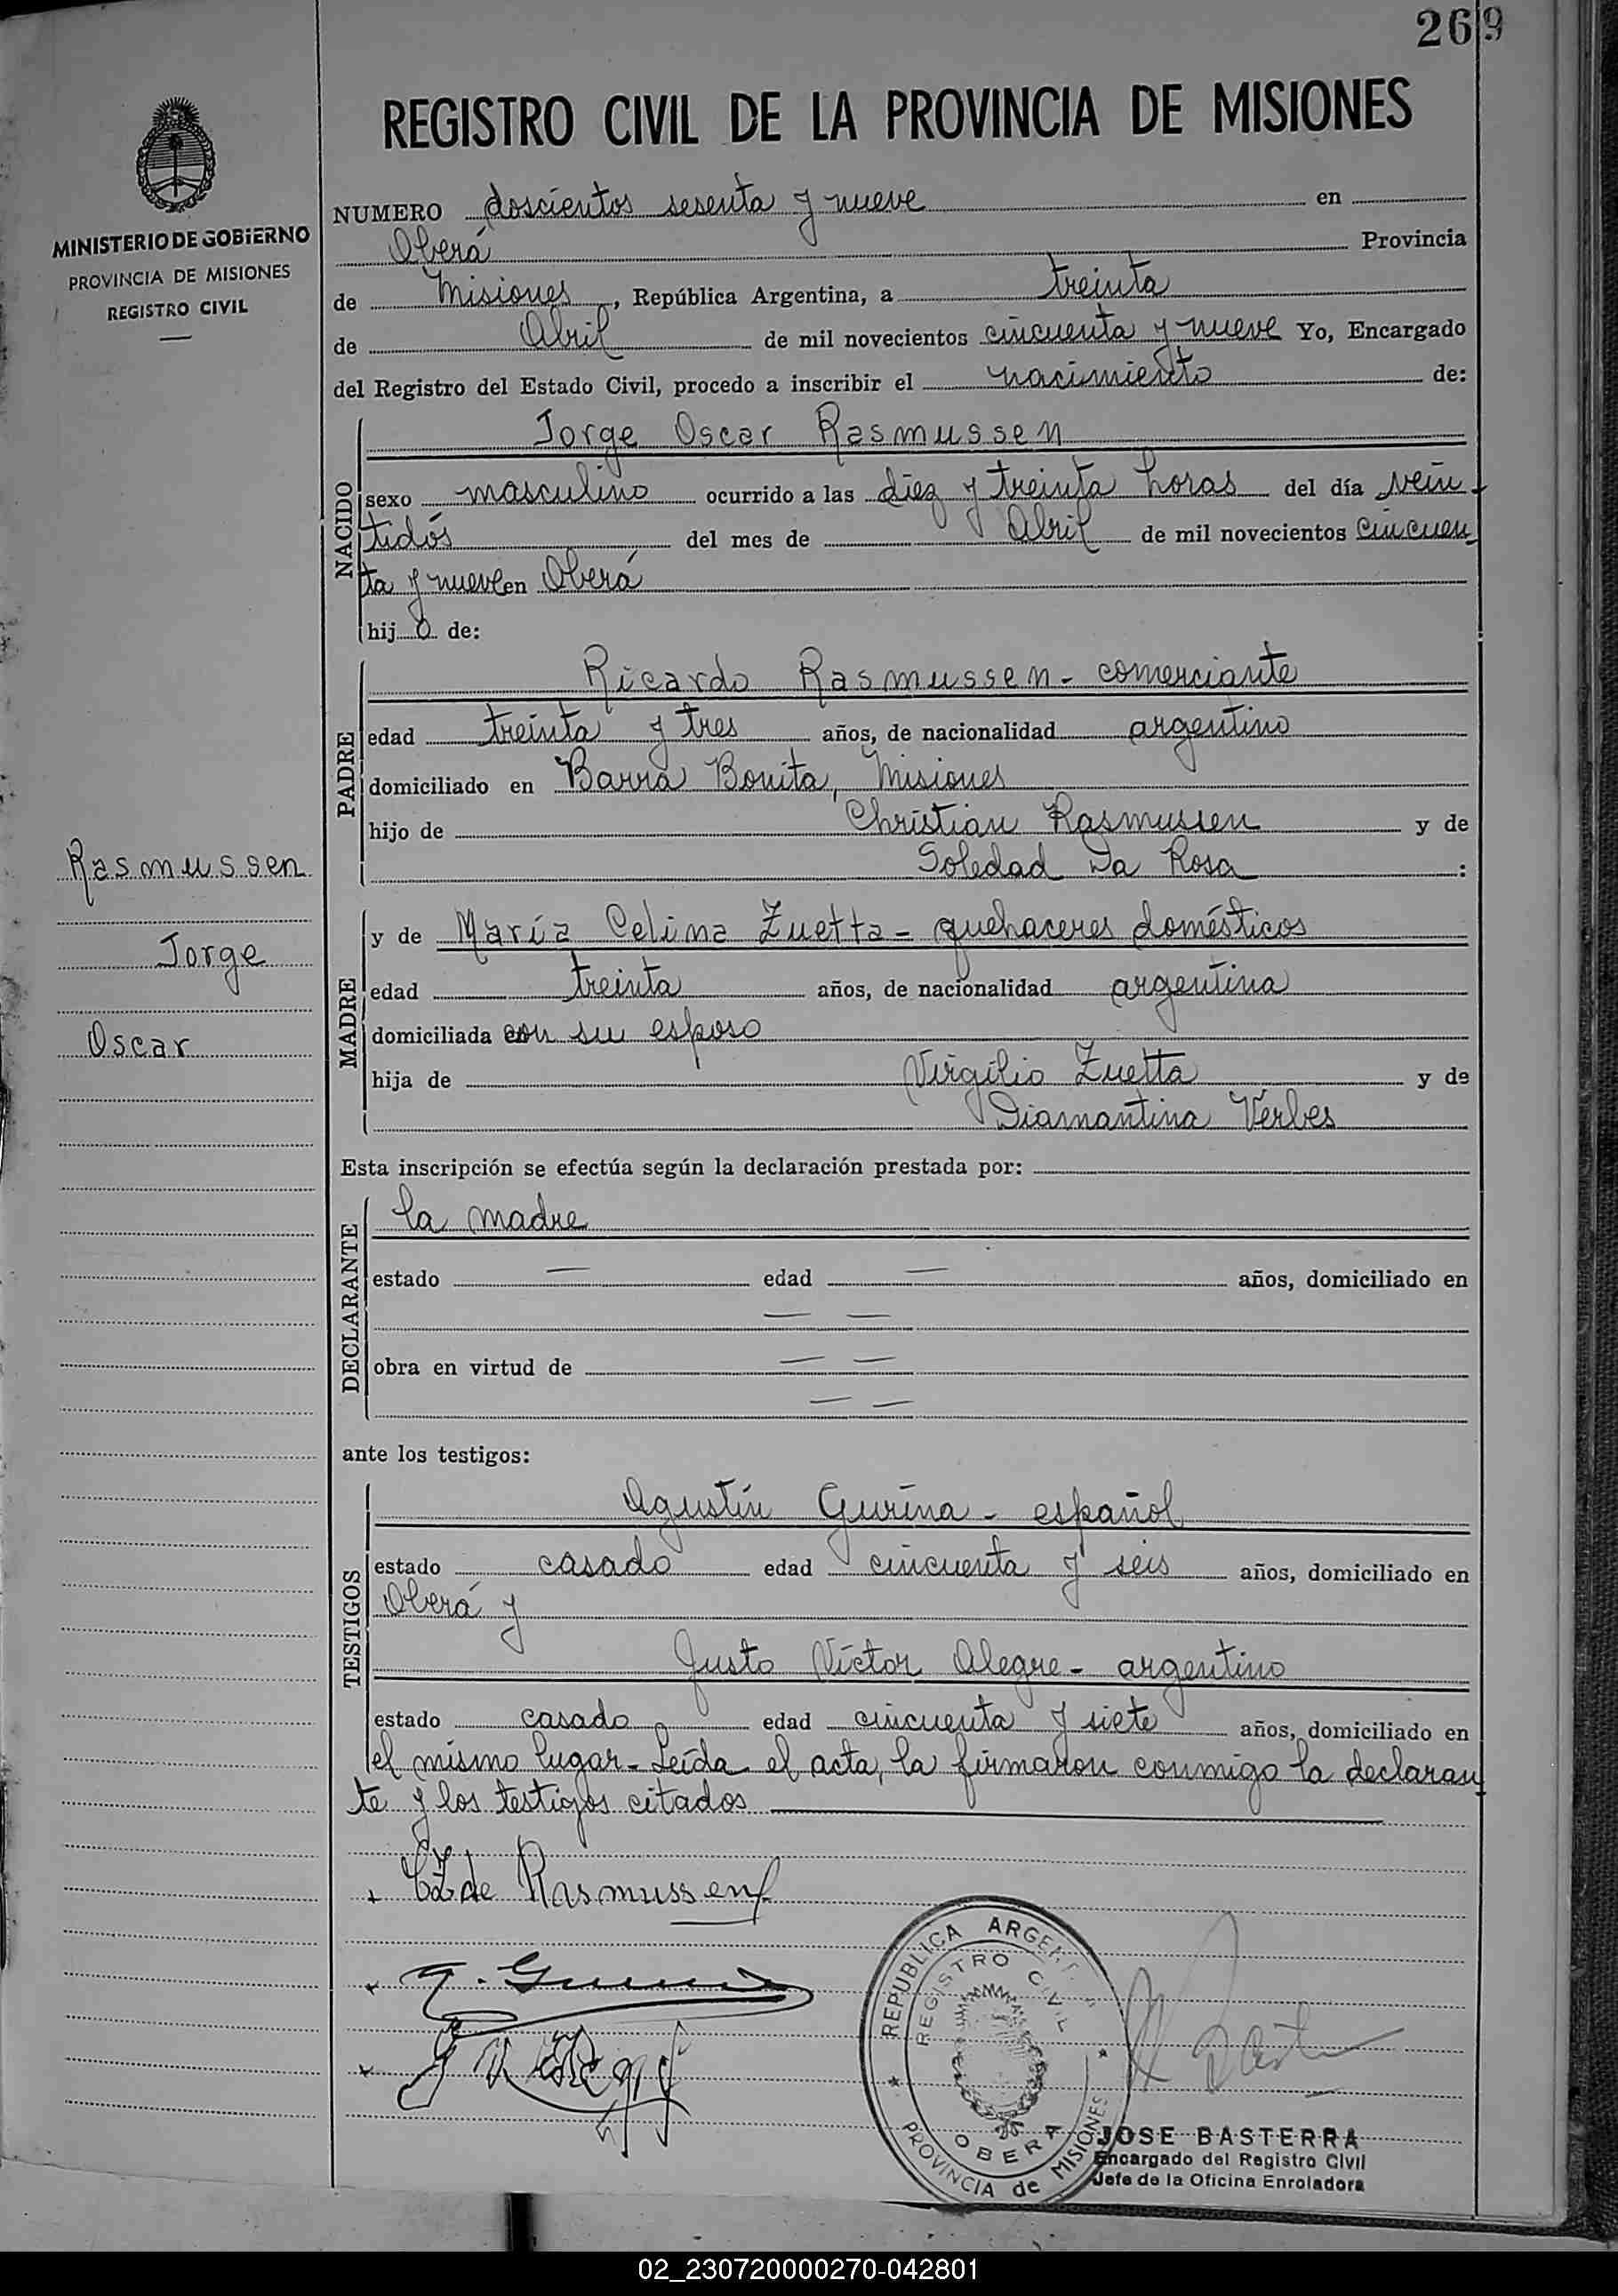 269
REGISTRO CIVIL DE LA PROVINCIA DE MISIONES
MINISTERIO DE GOBIERNO
PROVINCIA DE MISIONES
REGISTRO CIVIL
NUMERO doscientos sesenta y nueve en
Oberá Provincia
de Misiones, República Argentina, a treinta
de Abril de mil novecientos cincuenta y nueve Yo, Encargado
del Registro del Estado Civil, procedo a inscribir el nacimiento de:
NACIDO
Jorge Oscar Rasmussen
sexo masculino ocurrido a las diez y treinta horas del día vein
tidós del mes de Abril de mil novecientos cincuen
ta y nueve en Oberá
hijo de:
PADRE
Ricardo Rasmussen - comerciante
edad treinta y tres años, de nacionalidad argentino
domiciliado en Barra Bonita, Misiones
hijo de Christian Rasmussen y de
Soledad Da Rosa :
Rasmussen
Jorge
Oscar
MADRE
y de María Celina Zuetta - quehaceres domésticos
edad treinta años, de nacionalidad argentina
domiciliada con su esposo
hija de Virgilio Zuetta y de
Diamantina Verbes
Esta inscripción se efectúa según la declaración prestada por:
DECLARANTE
la madre
estado — edad — años, domiciliado en
— —
obra en virtud de — —
— —
ante los testigos:
TESTIGOS
Agustín Gurina - español
estado casado edad cincuenta y seis años, domiciliado en
Oberá y
Justo Víctor Alegre - argentino
estado casado edad cincuenta y siete años, domiciliado en
el mismo lugar - Leída el acta, la firmaron conmigo la declaran
te y los testigos citados
CZ de Rasmussen
REPUBLICA ARGENT
REGISTRO CIVIL
OBERA
PROVINCIA de MISIONES
JOSE BASTERRA
Encargado del Registro Civil
Jefe de la Oficina Enroladora
02_230720000270-042801